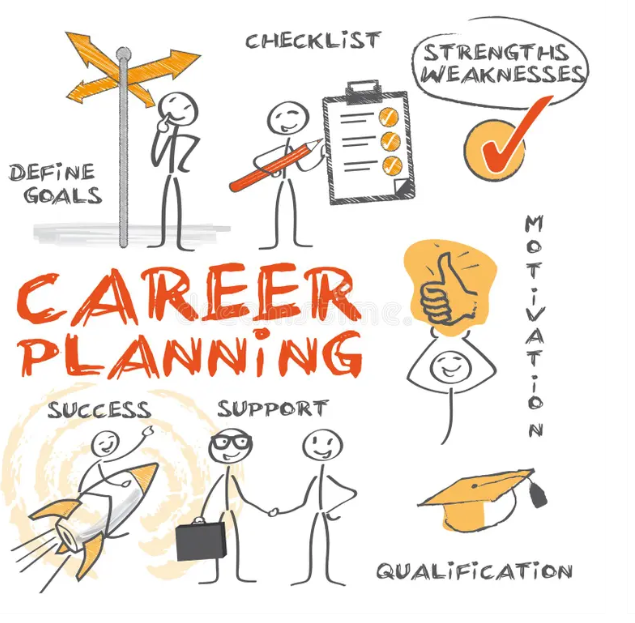 CHECKLIST
STRENGTHS
WEAKNESSES
DEFINE
GOALS
MOTIVATION
CAREER
PLANNING
SUCCESS
SUPPORT
QUALIFICATION